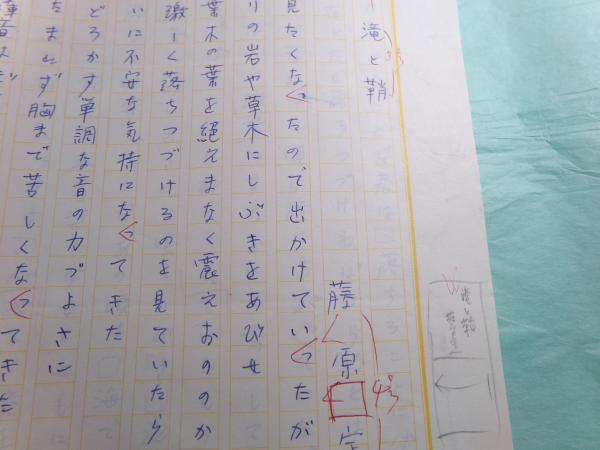 滝と鞘
藤原 定
見たくなったので出かけていったが
りの岩や草木にしぶきをあびせ
葉木の葉を絶えまなく震えおののか
激しく落ちつづけるのを見ていたら
いに不安な気持になってきた
どろかす単調な音の力づよさに
たまらず胸まで苦しくなってきた